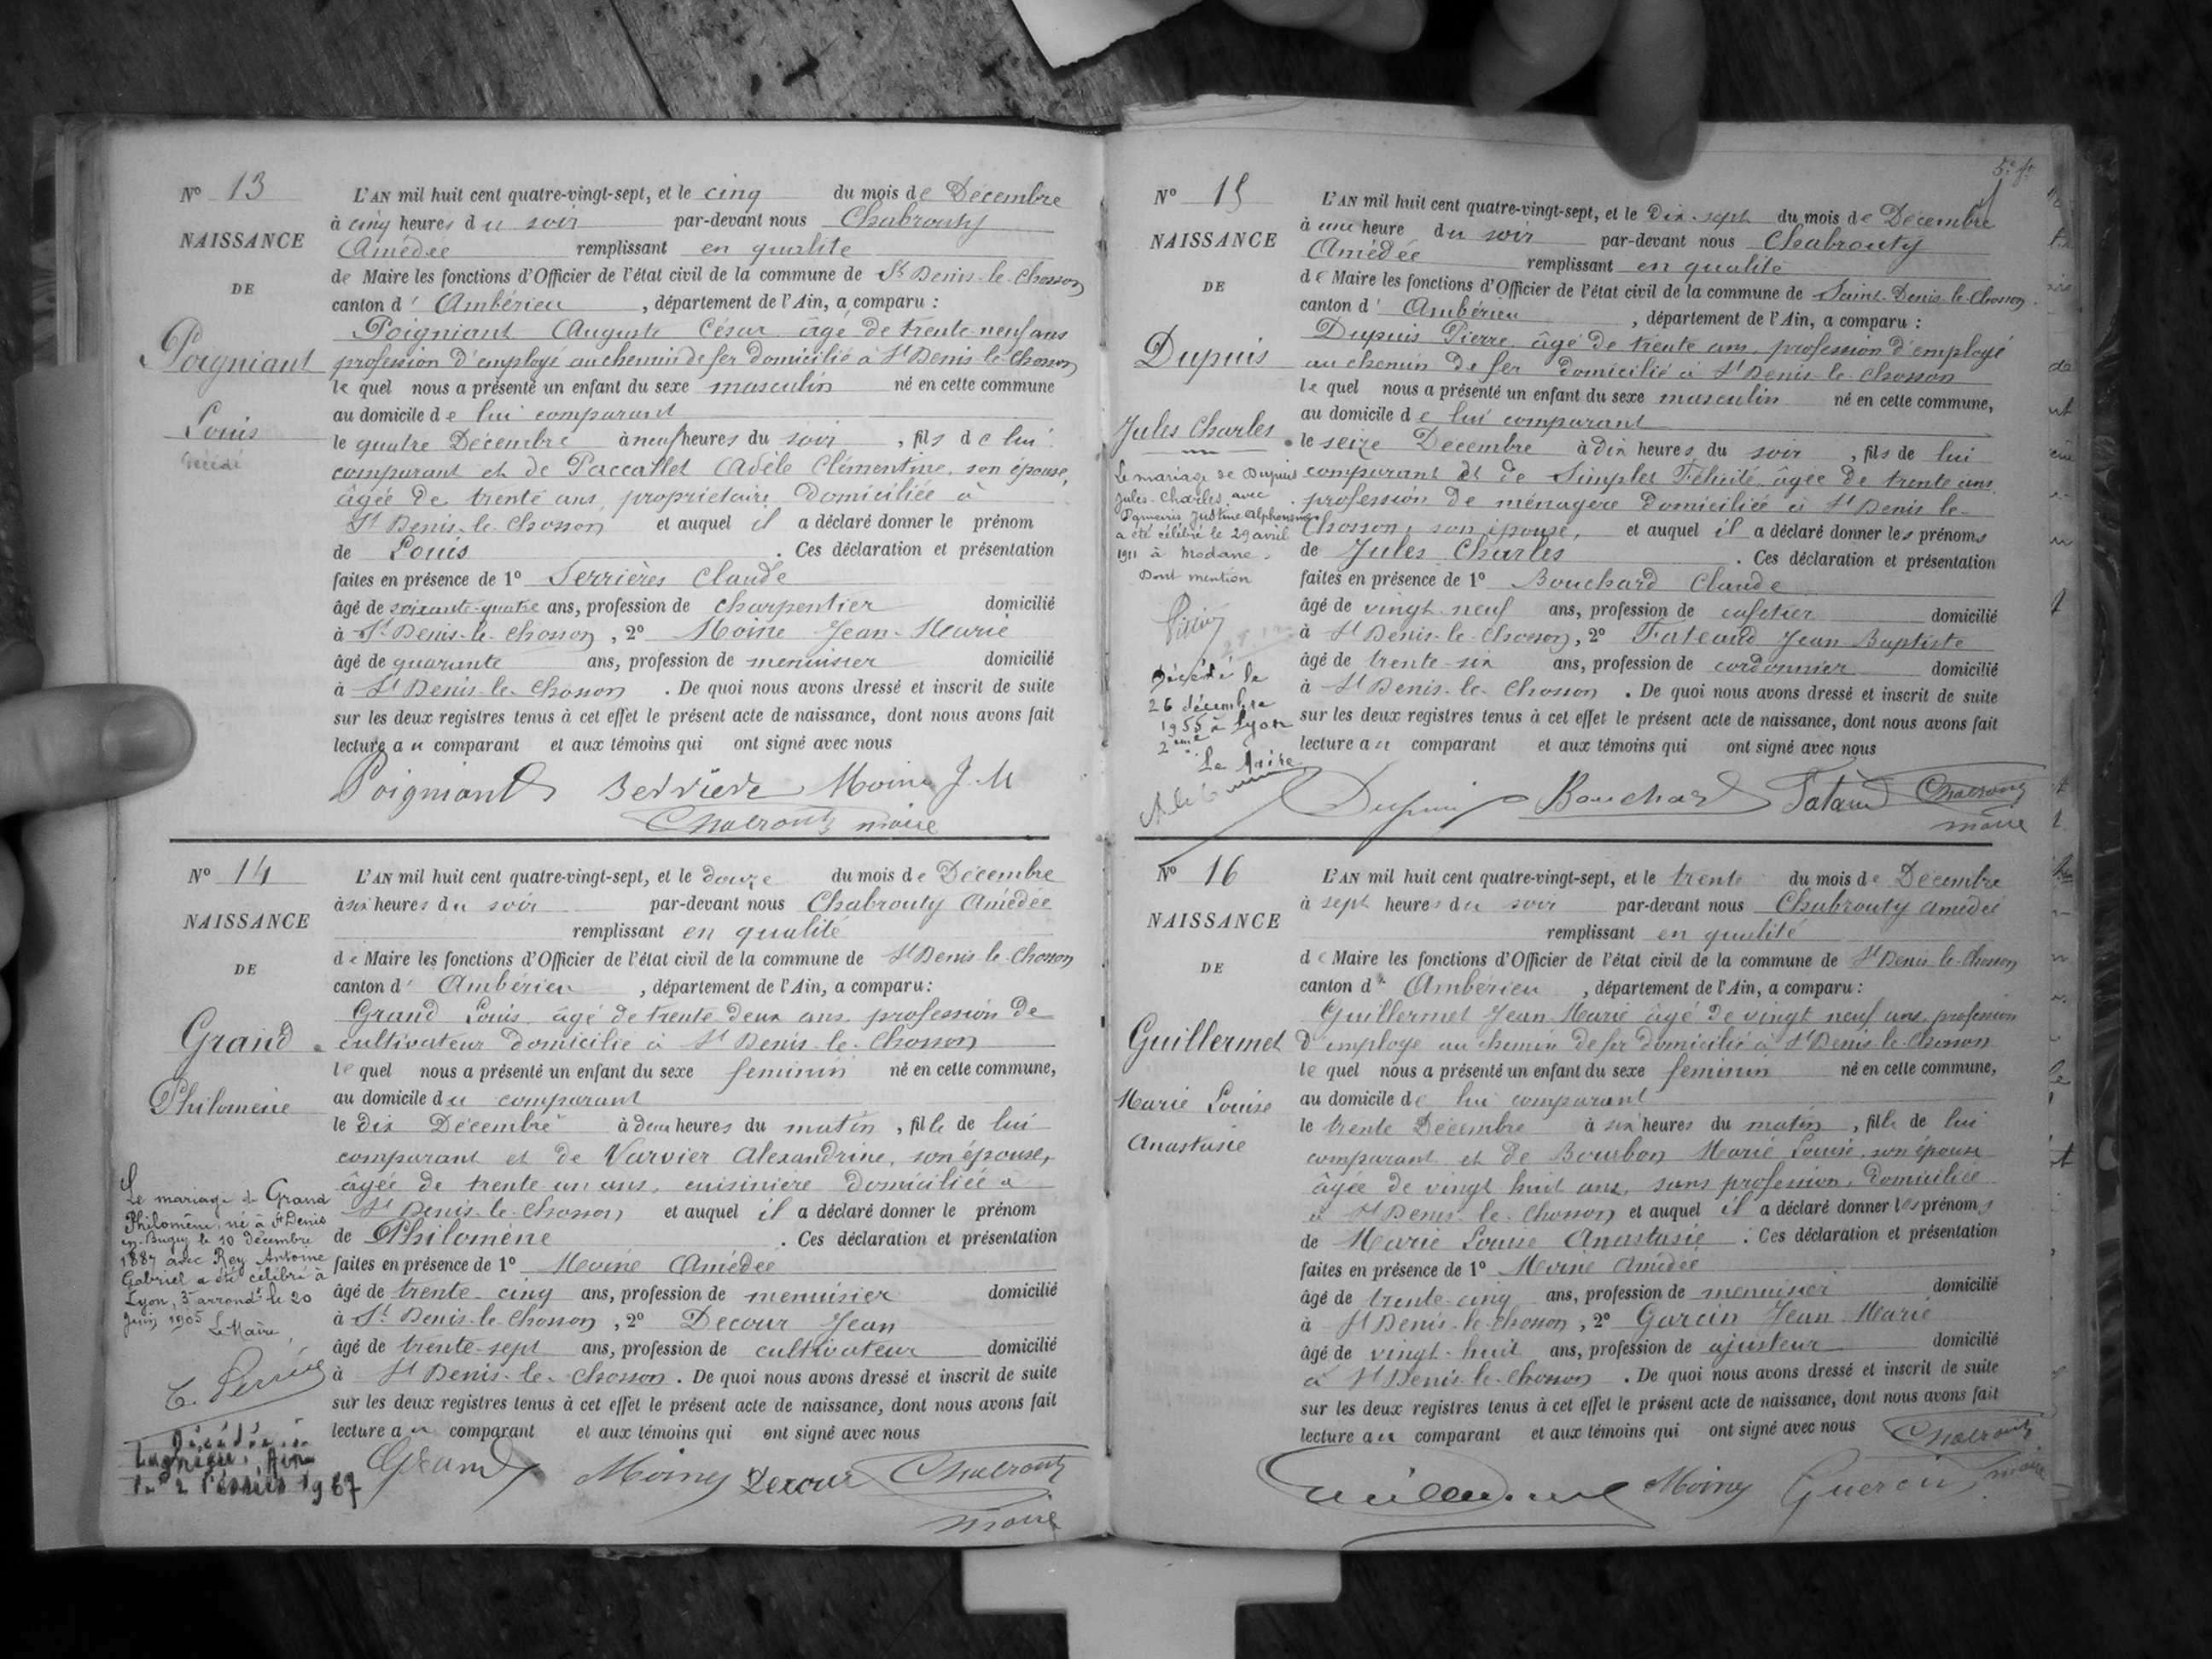 Nº 13
NAISSANCE
DE
Poigniant
Louis
Décédé
L'AN mil huit cent quatre-vingt-sept, et le cinq du mois de Décembre
à cinq heures du soir par-devant nous Chabrouty
Amédée remplissant en qualité
de Maire les fonctions d'Officier de l'état civil de la commune de St Denis-le-Chosson
canton d' Ambérieu , département de l'Ain, a comparu :
Poigniant Auguste César âgé de trente-neuf ans
profession d'employé au chemin de fer domicilié à St Denis-le-Chosson
le quel nous a présenté un enfant du sexe masculin né en cette commune
au domicile de lui comparant
le quatre Décembre à neuf heures du soir , fils de lui
comparant et de Paccallet Adèle Clémentine, son épouse,
âgée de trente ans, propriétaire domiciliée à
St Denis-le-Chosson et auquel il a déclaré donner le prénom
de Louis . Ces déclaration et présentation
faites en présence de 1º Serrières Claude
âgé de soixante-quatre ans, profession de charpentier domicilié
à St Denis-le-Chosson , 2º Moine Jean-Marie
âgé de quarante ans, profession de menuisier domicilié
à St Denis-le-Chosson . De quoi nous avons dressé et inscrit de suite
sur les deux registres tenus à cet effet le présent acte de naissance, dont nous avons fait
lecture au comparant et aux témoins qui ont signé avec nous
Poigniant Serrière Moine J. M
Chabrouty maire
Nº 14
NAISSANCE
DE
Grand
Philomène
Le mariage de Grand
Philomène, né à St Denis
en-Bugey le 10 décembre
1887 avec Rey Antoine
Gabriel a été célébré à
Lyon, 3e arrondt le 20
Juin 1905
Le Maire,
Décédée à
Lagnieu, Ain
le 2 février 1967
L'AN mil huit cent quatre-vingt-sept, et le douze du mois de Décembre
à six heures du soir par-devant nous Chabrouty Amédée
remplissant en qualité
de Maire les fonctions d'Officier de l'état civil de la commune de St Denis-le-Chosson
canton d' Ambérieu , département de l'Ain, a comparu:
Grand Louis, âgé de trente deux ans, profession de
cultivateur domicilié à St Denis-le-Chosson
le quel nous a présenté un enfant du sexe féminin né en cette commune,
au domicile du comparant
le dix Décembre à deux heures du matin , fille de lui
comparant et de Varvier Alexandrine, son épouse,
âgée de trente un ans, cuisinière domiciliée à
St Denis-le-Chosson et auquel il a déclaré donner le prénom
de Philomène . Ces déclaration et présentation
faites en présence de 1º Moine Amédée
âgé de trente-cinq ans, profession de menuisier domicilié
à St Denis-le-Chosson , 2º Decour Jean
âgé de trente-sept ans, profession de cultivateur domicilié
à St Denis-le-Chosson . De quoi nous avons dressé et inscrit de suite
sur les deux registres tenus à cet effet le présent acte de naissance, dont nous avons fait
lecture au comparant et aux témoins qui ont signé avec nous
Grand Moine Decour Chabrouty
maire
Nº 15
NAISSANCE
DE
Dupuis
Jules Charles
Le mariage de Dupuis
Jules-Charles avec
Justine Alphonsine
a été célébré le 29 avril
1911 à Modane.
Dont mention
Décédé le
26 décembre
1955 à Lyon
2eme
Le Maire
L'AN mil huit cent quatre-vingt-sept, et le dix-sept du mois de Décembre
à une heure du soir par-devant nous Chabrouty
Amédée remplissant en qualité
de Maire les fonctions d'Officier de l'état civil de la commune de Saint-Denis-le-Chosson
canton d' Ambérieu , département de l'Ain, a comparu :
Dupuis Pierre âgé de trente ans, profession d'employé
au chemin de fer domicilié à St Denis-le-Chosson
le quel nous a présenté un enfant du sexe masculin né en cette commune,
au domicile de lui comparant
le seize Décembre à dix heures du soir , fils de lui
comparant et de Simplet Félicité âgée de trente ans
profession de ménagère domiciliée à St Denis le-
Chosson, son épouse, et auquel il a déclaré donner les prénoms
de Jules Charles . Ces déclaration et présentation
faites en présence de 1º Bouchard Claude
âgé de vingt neuf ans, profession de cafetier domicilié
à St Denis-le-Chosson, 2º Jean Baptiste
âgé de trente-six ans, profession de cordonnier domicilié
à St Denis-le-Chosson . De quoi nous avons dressé et inscrit de suite
sur les deux registres tenus à cet effet le présent acte de naissance, dont nous avons fait
lecture au comparant et aux témoins qui ont signé avec nous
Dupuis Bouchard Chabrouty
maire
Nº 16
NAISSANCE
DE
Guillermet
Marie Louise
Anastasie
L'AN mil huit cent quatre-vingt-sept, et le trente du mois de Décembre
à sept heures du soir par-devant nous Chabrouty Amédée
remplissant en qualité
de Maire les fonctions d'Officier de l'état civil de la commune de St Denis-le-Chosson
canton d' Ambérieu , département de l'Ain, a comparu :
Guillermet Jean-Marie âgé de vingt neuf ans, profession
d'employé au chemin de fer domicilié à St Denis-le-Chosson
le quel nous a présenté un enfant du sexe féminin né en cette commune,
au domicile de lui comparant
le trente Décembre à six heures du matin , fille de lui
comparant et de Bourbon Marie Louise, son épouse
âgée de vingt huit ans, sans profession, domiciliée
à St Denis-le-Chosson et auquel il a déclaré donner les prénoms
de Marie Louise Anastasie . Ces déclaration et présentation
faites en présence de 1º Moine Amédée
âgé de trente-cinq ans, profession de menuisier domicilié
à St Denis-le-Chosson , 2º Garcin Jean Marie
âgé de vingt-huit ans, profession de ajusteur domicilié
à St Denis-le-Chosson . De quoi nous avons dressé et inscrit de suite
sur les deux registres tenus à cet effet le présent acte de naissance, dont nous avons fait
lecture au comparant et aux témoins qui ont signé avec nous Chabrouty
Guillermet Moine maire